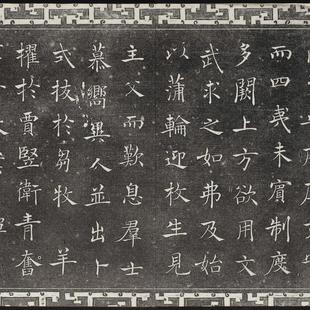 而四夷未賓制度
多闕上方欲用文
武求之如弗及始
以蒲輪迎枚生見
主父而歎息羣士
慕嚮異人並出卜
式拔於芻牧 羊
擢於賈豎衛青奮